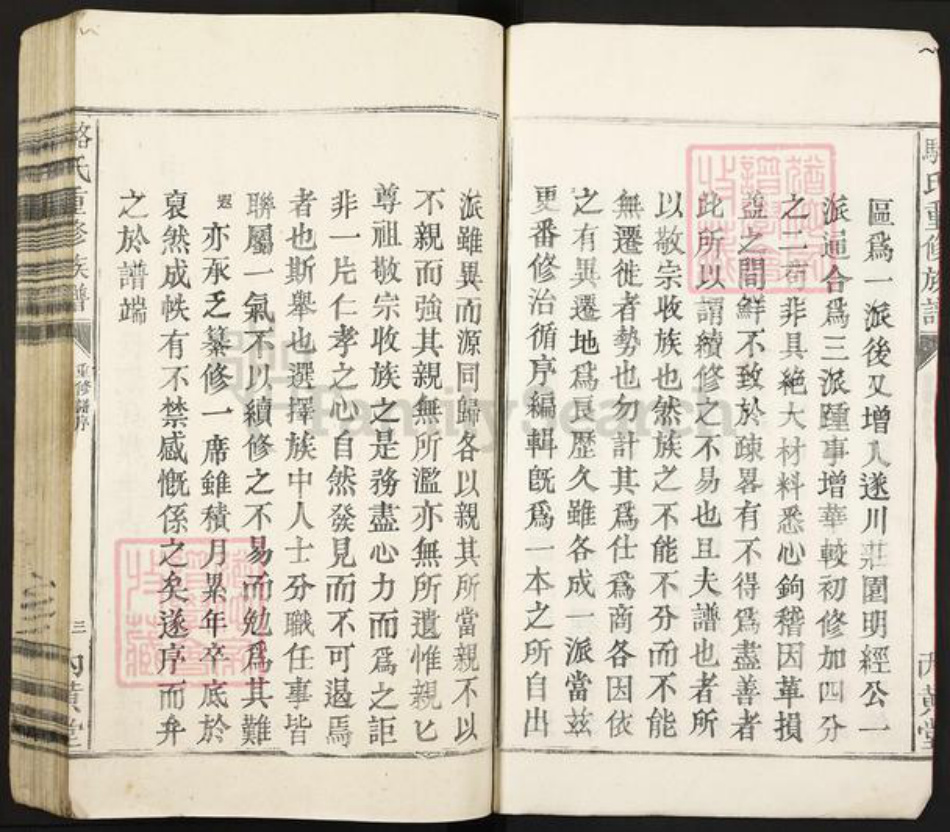 駱氏重修族譜
區爲一派後又增入遂川莊園明經公一
派通合爲三派踵事增華較初修加四分
之二苟非具絶大材料悉心鉤稽因革損
益之間鮮不致於疎畧有不得爲盡善者
此所以謂續修之不易也且夫譜也者所
以敬宗收族也然族之不能不分而不能
無遷徙者勢也勿計其爲仕爲商各因依
之有異遷地爲良歷久雖各成一派當玆
更番修治循序編輯旣爲一本之所自出
派雖異而源同歸各以親其所當親不以
不親而強其親無所濫亦無所遺惟親匕
尊祖敬宗收族之是務盡心力而爲之詎
非一片仁孝之心自然發見而不可遏焉
者也斯舉也選擇族中人士分職任事皆
聯屬一氣不以續修之不易而勉爲其難
亦承乏纂修一席雖積月累年卒底於
裒然成帙有不禁感慨係之矣遂序而弁
之於譜端
駱氏重修族譜
重修譜序
三
內黃堂
FamilySearch